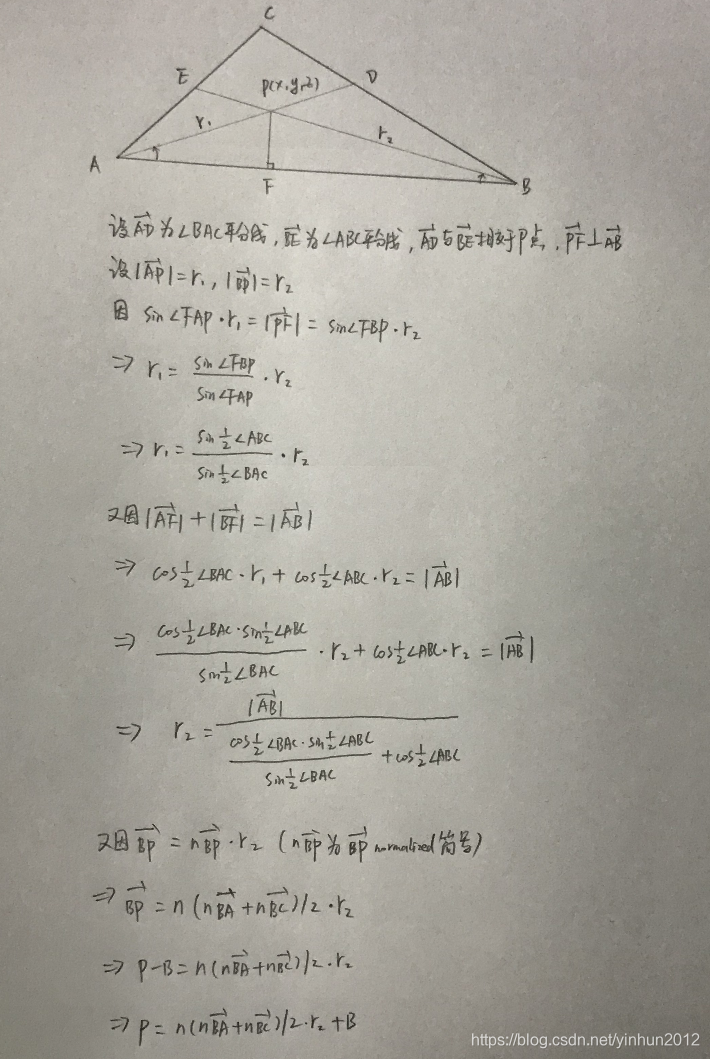 C
E
P(x,y,z)
D
r₁
r₂
A
F
B
设 $\overrightarrow{AD}$ 为∠BAC平分线, $\overrightarrow{BE}$ 为∠ABC平分线, $\overrightarrow{AD}$ 与 $\overrightarrow{BE}$ 相交于P点, $\overrightarrow{PF}$⊥$\overrightarrow{AB}$
设 |$\overrightarrow{AP}$| = r₁, |$\overrightarrow{BP}$| = r₂
因 sin∠FAP · r₁ = |$\overrightarrow{PF}$| = sin∠FBP · r₂
⇒ r₁ = $\frac{\sin∠FBP}{\sin∠FAP}$ · r₂
⇒ r₁ = $\frac{\sin\frac{1}{2}∠ABC}{\sin\frac{1}{2}∠BAC}$ · r₂
又因 |$\overrightarrow{AF}$| + |$\overrightarrow{BF}$| = |$\overrightarrow{AB}$|
⇒ cos$\frac{1}{2}$∠BAC · r₁ + cos$\frac{1}{2}$∠ABC · r₂ = |$\overrightarrow{AB}$|
⇒ $\frac{\cos\frac{1}{2}∠BAC · \sin\frac{1}{2}∠ABC}{\sin\frac{1}{2}∠BAC}$ · r₂ + cos$\frac{1}{2}$∠ABC · r₂ = |$\overrightarrow{AB}$|
⇒ r₂ = $\frac{|\overrightarrow{AB}|}{\frac{\cos\frac{1}{2}∠BAC · \sin\frac{1}{2}∠ABC}{\sin\frac{1}{2}∠BAC} + \cos\frac{1}{2}∠ABC}$
又因 $\overrightarrow{BP}$ = n$\overrightarrow{BP}$ · r₂ (n$\overrightarrow{BP}$ 为 $\overrightarrow{BP}$ normalized 简号)
⇒ $\overrightarrow{BP}$ = n(n$\overrightarrow{BA}$ + n$\overrightarrow{BC}$)/2 · r₂
⇒ P-B = n(n$\overrightarrow{BA}$ + n$\overrightarrow{BC}$)/2 · r₂
⇒ P = n(n$\overrightarrow{BA}$ + n$\overrightarrow{BC}$)/2 · r₂ + B
https://blog.csdn.net/yinhun2012